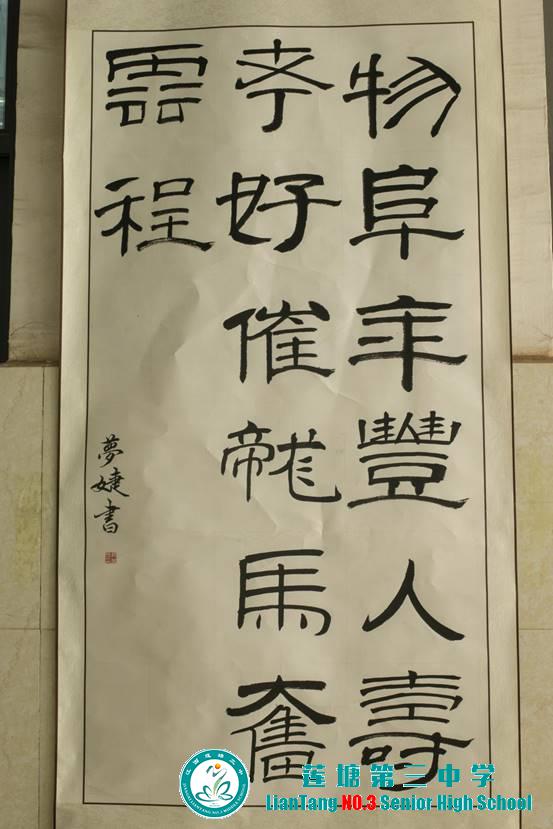 物阜年豐人壽
考好催龍馬奮
雲程
夢婕書
莲塘第三中学
LianTang NO.3 Senior High School